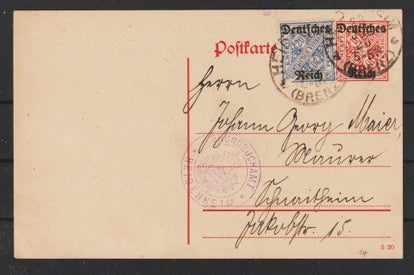 Postkarte
Deutsches
Reich
20
Deutsches
Reich
HEIDENHEIM
(BRENZ)
Herrn
Johann Georg Maier,
Maurer
Schnaitheim
Jakobstr. 15.
HEIDENHEIM
S 20